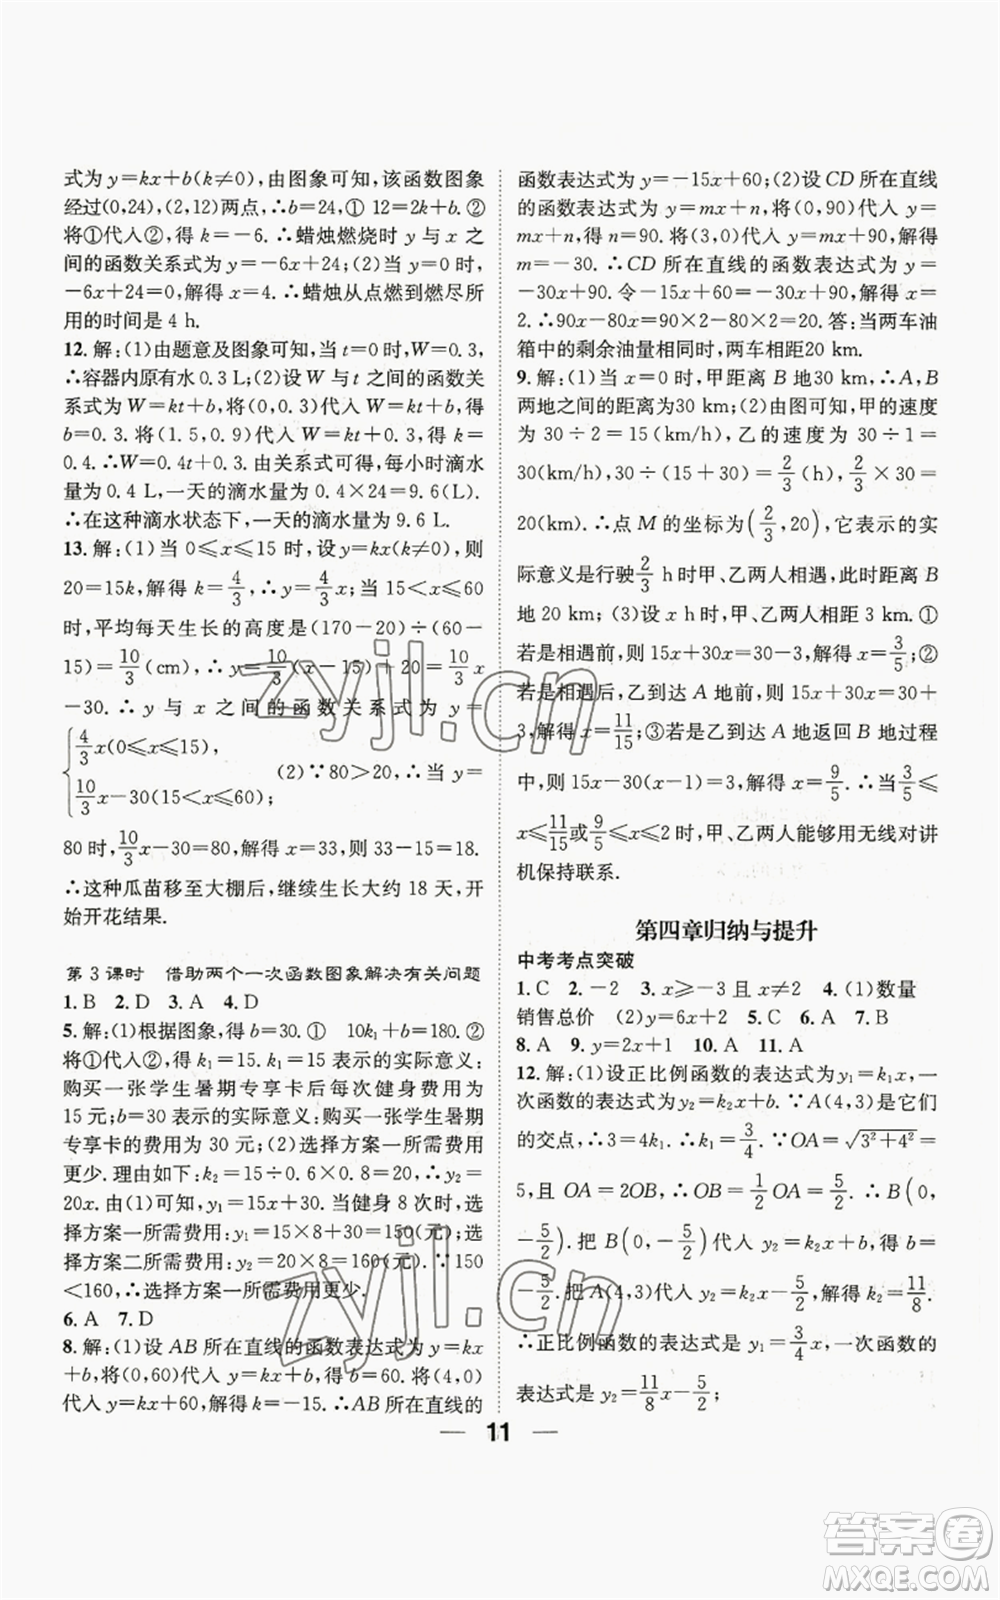 式为 y=kx+b(k≠0),由图象可知,该函数图象
经过(0,24),(2,12)两点,∴b=24,① 12=2k+b. ②
将①代入②,得 k=-6. ∴蜡烛燃烧时 y 与 x 之
间的函数关系式为 y=-6x+24;(2)当 y=0 时,
-6x+24=0,解得 x=4. ∴蜡烛从点燃到燃尽所
用的时间是 4 h.
12. 解:(1)由题意及图象可知,当 t=0 时,W=0. 3,
∴容器内原有水 0.3 L;(2)设 W 与 t 之间的函数关
系式为 W=kt+b,将(0,0.3)代入 W=kt+b,得
b=0.3. 将(1.5,0.9)代入 W=kt+b,得 k=
0.4. ∴W=0.4t+0.3. 由关系式可得,每小时滴水
量为 0.4 L,一天的滴水量为 0.4×24=9.6(L).
∴在这种滴水状态下,一天的滴水量为 9.6 L.
13. 解:(1)当 0≤x≤15 时,设 y=kx(k≠0),则
20=15k,解得 k=4/3,∴y=4/3x;当 15<x≤60
时,平均每天生长的高度是(170-20)÷(60-
15)=10/3(cm),∴y=10/3(x-15)+20=10/3x
-30. ∴y 与 x 之间的函数关系式为 y=
{4/3x(0≤x≤15),
10/3x-30(15<x≤60);
(2)∵80>20,∴当 y=
80 时,10/3x-30=80,解得 x=33,则 33-15=18.
∴这种瓜苗移至大棚后,继续生长大约 18 天,开
始开花结果.
第 3 课时 借助两个一次函数图象解决有关问题
1. B 2. D 3. A 4. D
5. 解:(1)根据图象,得 b=30. ① 10k₁+b=180. ②
将①代入②,得 k₁=15. k₁=15 表示的实际意义:
购买一张学生暑期专享卡后每次健身费用为
15 元;b=30 表示的实际意义:购买一张学生暑期
专享卡的费用为 30 元;(2)选择方案一所需费用
更少. 理由如下:k₂=15÷0.6×0.8=20,∴y₂=
20x. 由(1)可知,y₁=15x+30. 当健身 8 次时,选
择方案一所需费用:y₁=15×8+30=150(元);选
择方案二所需费用:y₂=20×8=160(元). ∵150
<160,∴选择方案一所需费用更少.
6. A 7. D
8. 解:(1)设 AB 所在直线的函数表达式为 y=kx
+b,将(0,60)代入 y=kx+b,得 b=60. 将(4,0)
代入 y=kx+60,得 k=-15. ∴AB 所在直线的
函数表达式为 y=-15x+60;(2)设 CD 所在直线
的函数表达式为 y=mx+n,将(0,90)代入 y=
mx+n,得 n=90. 将(3,0)代入 y=mx+90,解得
m=-30. ∴CD 所在直线的函数表达式为 y=
-30x+90. 令-15x+60=-30x+90,解得 x=
2. ∴90x-80x=90×2-80×2=20. 答:当两车油
箱中的剩余油量相同时,两车相距20 km.
9. 解:(1)当 x=0 时,甲距离 B 地30 km,∴A,B
两地之间的距离为30 km;(2)由图可知,甲的速度
为 30÷2=15(km/h),乙的速度为 30÷1=
30(km/h),30÷(15+30)=2/3(h),2/3×30=
20(km). ∴点 M 的坐标为(2/3,20),它表示的实
际意义是行驶2/3 h时甲、乙两人相遇,此时距离 B
地 20 km;(3)设 x h时,甲、乙两人相距 3 km. ①
若是相遇前,则 15x+30x=30-3,解得 x=3/5;②
若是相遇后,乙到达 A 地前,则15x+30x=30+
3,解得 x=11/15;③若是乙到达 A 地返回 B 地过程
中,则 15x-30(x-1)=3,解得 x=9/5. ∴当3/5≤
x≤11/15或9/5≤x≤2 时,甲、乙两人能够用无线对讲
机保持联系.
第四章归纳与提升
中考考点突破
1. C 2. -2 3. x≥-3 且 x≠2 4. (1)数量
销售总价 (2)y=6x+2 5. C 6. A 7. B
8. A 9. y=2x+1 10. A 11. A
12. 解:(1)设正比例函数的表达式为 y₁=k₁x,一
次函数的表达式为 y₂=k₂x+b. ∵A(4,3)是它们
的交点,∴3=4k₁. ∴k₁=3/4. ∵OA=√3²+4²=
5,且 OA=2OB,∴OB=1/2OA=5/2. ∴B(0,
-5/2). 把 B(0,-5/2)代入 y₂=k₂x+b,得 b=
-5/2. 把 A(4,3)代入 y₂=k₂x-5/2,解得 k₂=11/8.
∴正比例函数的表达式是 y₁=3/4x,一次函数的
表达式是 y₂=11/8x-5/2;
11
zyjl.cn
zyjl.cn
答案卷
MXQE.COM